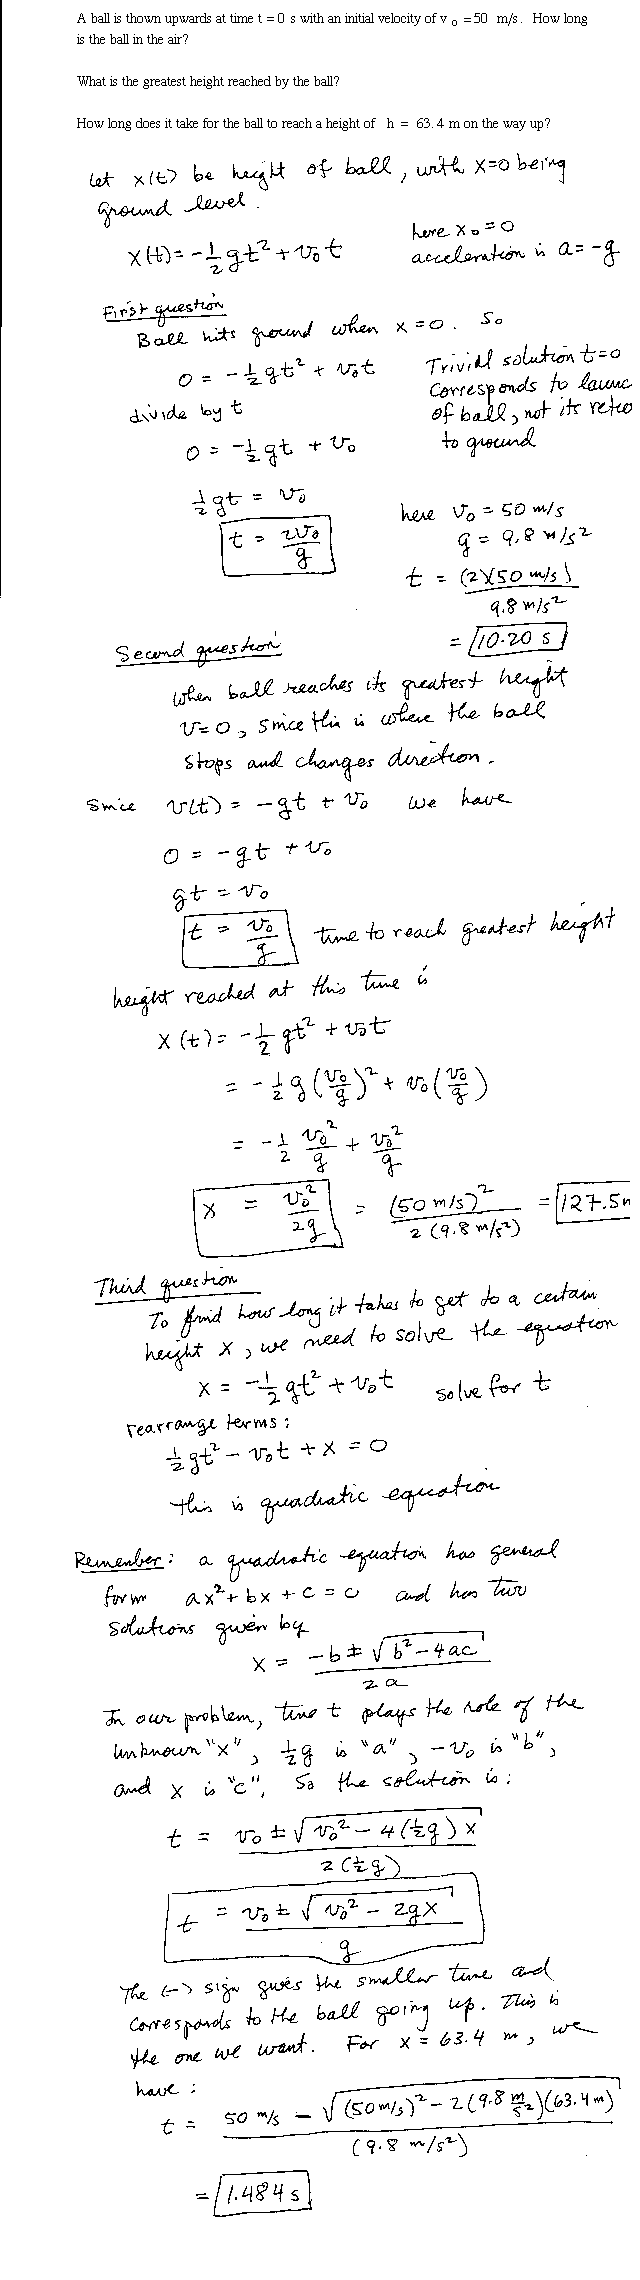 A ball is thown upwards at time t = 0 s with an initial velocity of v₀ = 50 m/s. How long
is the ball in the air?
What is the greatest height reached by the ball?
How long does it take for the ball to reach a height of h = 63.4 m on the way up?
Let x(t) be height of ball, with x=0 being
ground level.
here x₀ = 0
x(t) = -½gt² + v₀t
acceleration is a = -g
First question
Ball hits ground when x = 0. So
0 = -½gt² + v₀t
Trivial solution t=0
corresponds to launc
of ball, not its retu
to ground
divide by t
0 = -½gt + v₀
½gt = v₀
t = 2v₀/g
here v₀ = 50 m/s
g = 9.8 m/s²
t = (2)(50 m/s) / 9.8 m/s²
= 10.20 s
Second question
When ball reaches its greatest height
v=0, since this is where the ball
stops and changes direction.
Since v(t) = -gt + v₀ we have
0 = -gt + v₀
gt = v₀
t = v₀/g time to reach greatest height
height reached at this time is
x(t) = -½gt² + v₀t
= -½g(v₀/g)² + v₀(v₀/g)
= -½ v₀²/g + v₀²/g
x = v₀²/2g = (50 m/s)² / 2(9.8 m/s²) = 127.5m
Third question
To find how long it takes to get to a certain
height x, we need to solve the equation
x = -½gt² + v₀t solve for t
rearrange terms:
½gt² - v₀t + x = 0
this is quadratic equation
Remember: a quadratic equation has general
form ax² + bx + c = 0 and has two
solutions given by
x = (-b ± √(b² - 4ac)) / 2a
In our problem, time t plays the role of the
unknown "x", ½g is "a", -v₀ is "b",
and x is "c". So the solution is:
t = (v₀ ± √(v₀² - 4(½g)x)) / 2(½g)
t = (v₀ ± √(v₀² - 2gx)) / g
The (-) sign gives the smaller time and
corresponds to the ball going up. This is
the one we want. For x = 63.4 m, we
have:
t = (50 m/s - √((50 m/s)² - 2(9.8 m/s²)(63.4 m))) / (9.8 m/s²)
= 1.484 s